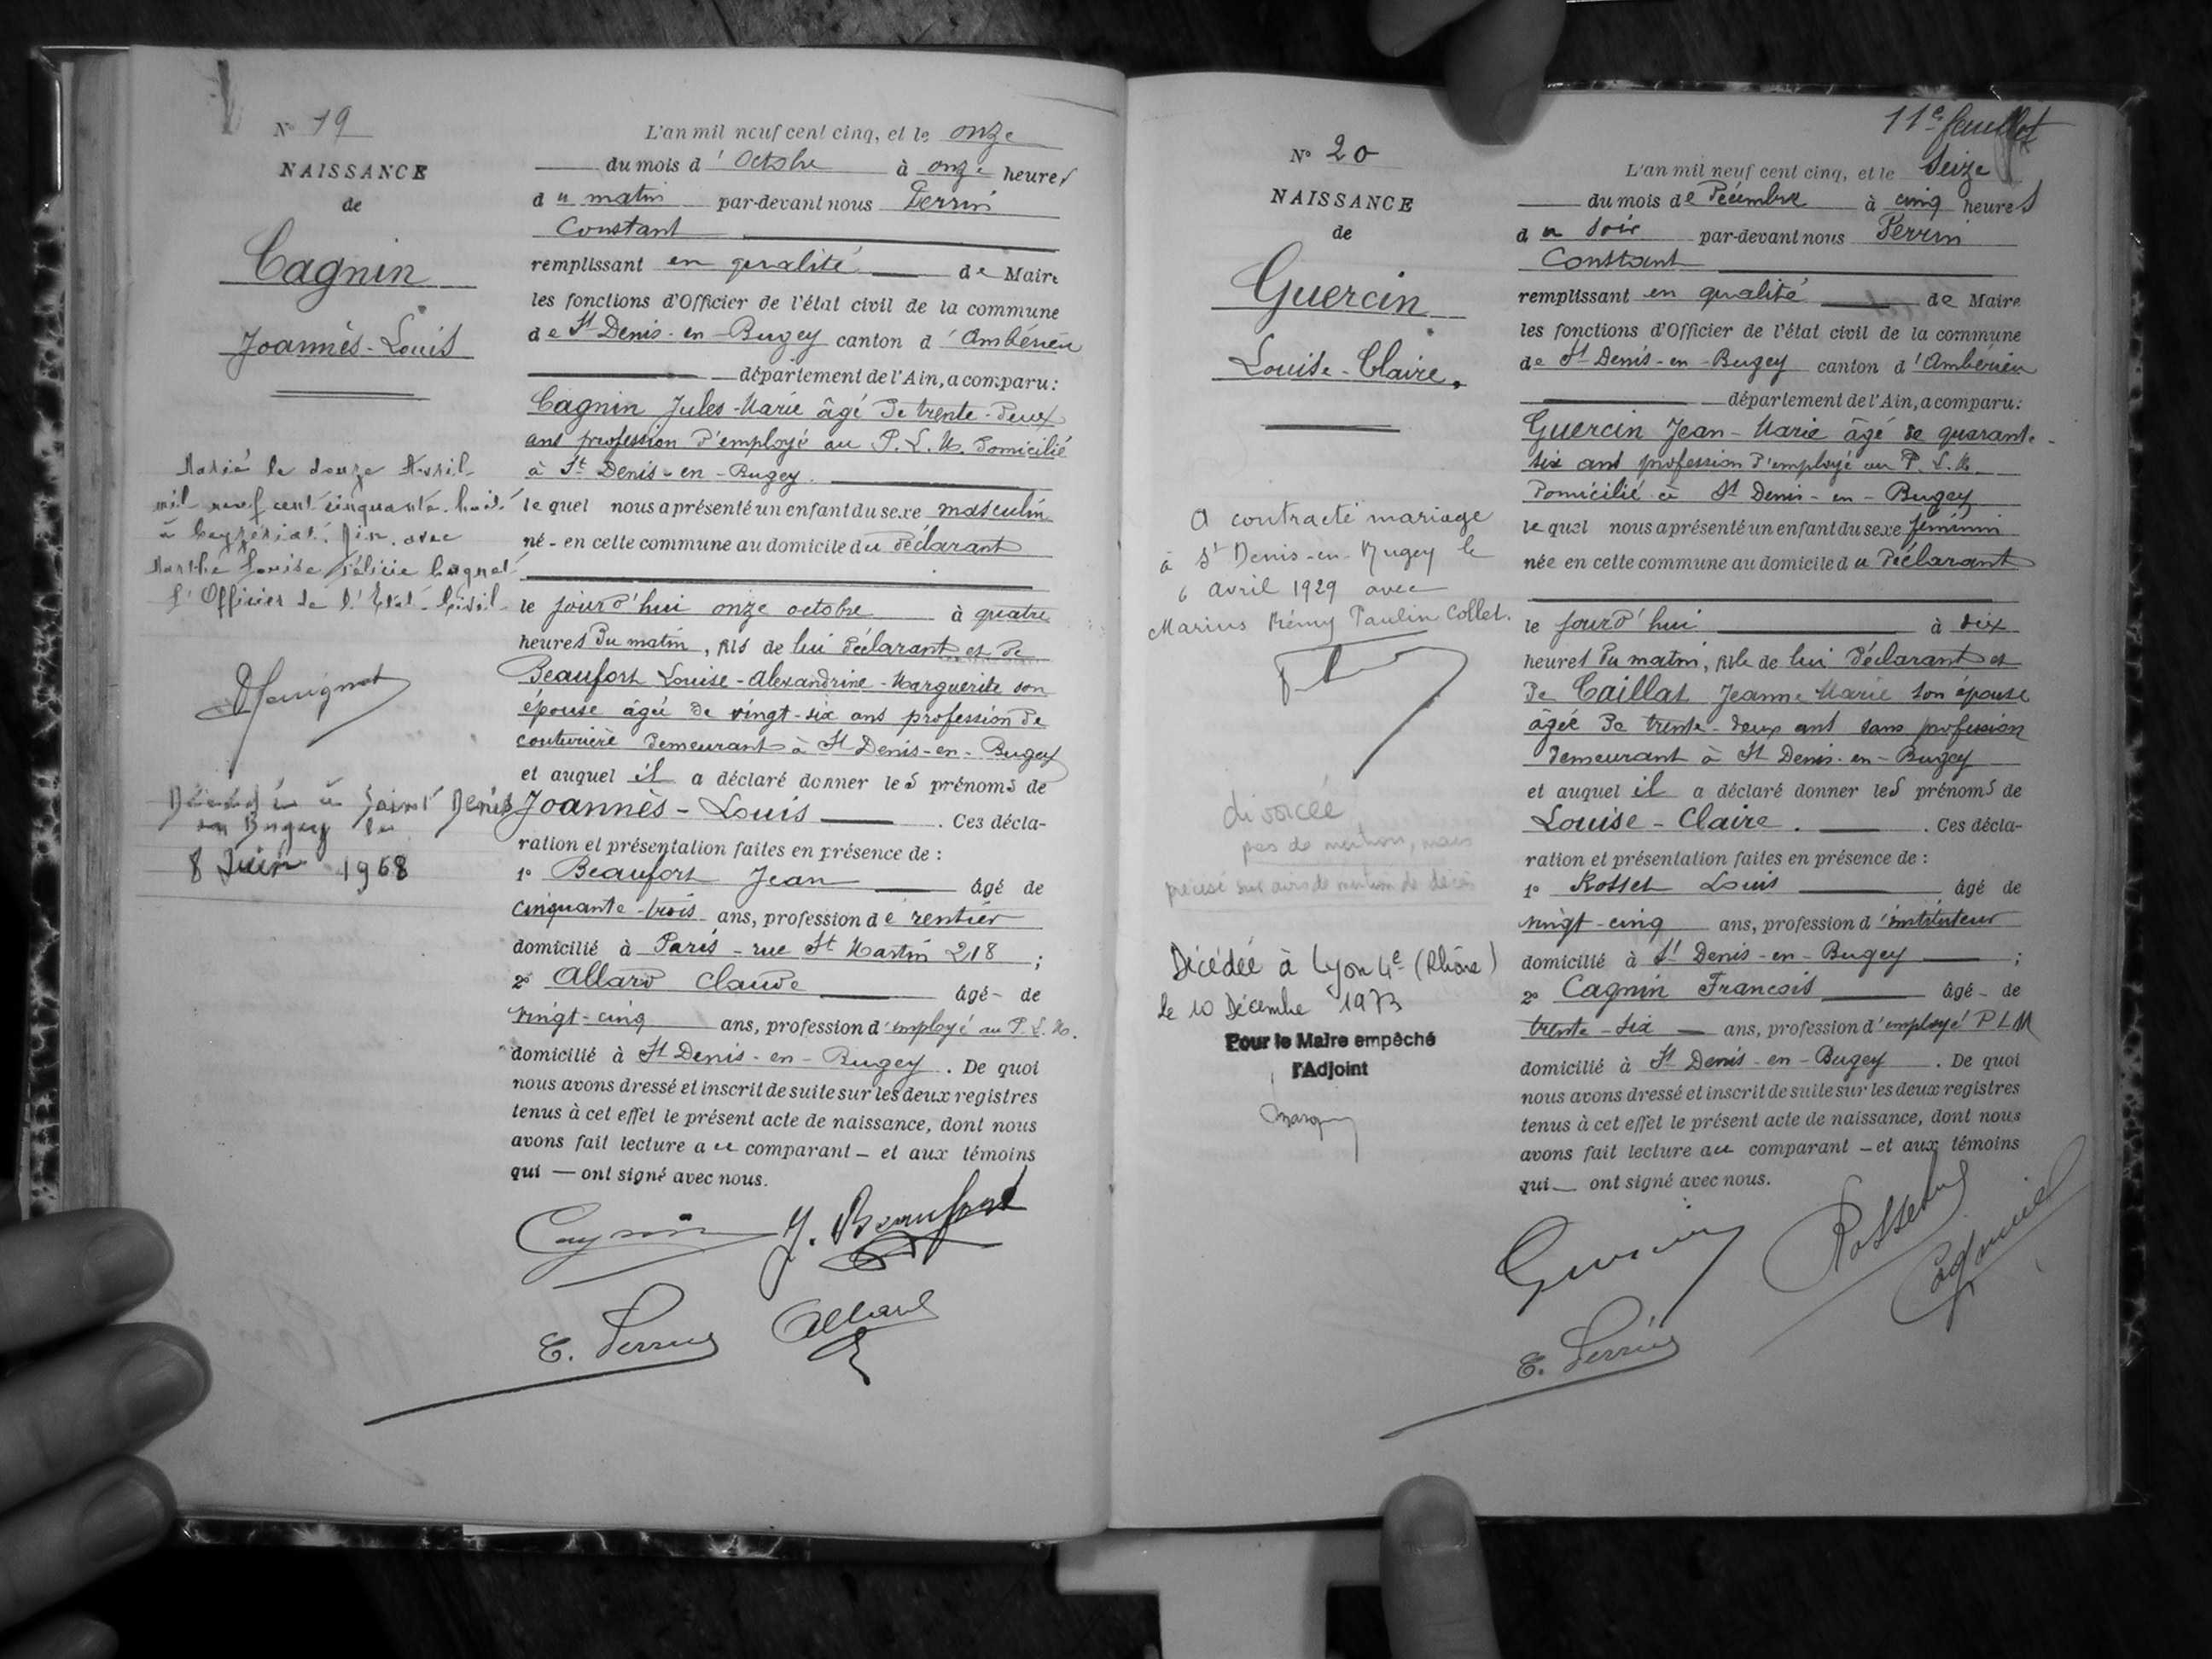 N° 19
NAISSANCE
de
Cagnin
Joannès-Louis
Marié le douze Avril
mil neuf cent cinquante-huit
à Ceyzériat. Ain. avec
Marthe Louise Félicie
L'Officier de l'Etat-Civil
Décédé à Saint Denis
en Bugey le
8 Juin 1968
L'an mil neuf cent cinq, et le onze
du mois d'Octobre à onze heures
du matin par-devant nous Perrin
Constant
remplissant en qualité de Maire
les fonctions d'Officier de l'état civil de la commune
de St Denis-en-Bugey canton d'Ambérieu
département de l'Ain, a comparu :
Cagnin Jules-Marie âgé de trente-deux
ans profession d'employé au P. L. M. domicilié
à St Denis-en-Bugey.
lequel nous a présenté un enfant du sexe masculin
né - en cette commune au domicile du déclarant
le jourd'hui onze octobre à quatre
heures du matin, fils de lui déclarant et de
Beaufort Louise-Alexandrine-Marguerite son
épouse âgée de vingt-six ans profession de
couturière demeurant à St Denis-en-Bugey
et auquel il a déclaré donner les prénoms de
Joannès-Louis. Ces décla-
ration et présentation faites en présence de :
1° Beaufort Jean âgé de
cinquante-trois ans, profession de rentier
domicilié à Paris - rue St Martin 218 ;
2° Allard Claude âgé - de
vingt-cinq ans, profession d'employé au P. L. M.
domicilié à St Denis-en-Bugey. De quoi
nous avons dressé et inscrit de suite sur les deux registres
tenus à cet effet le présent acte de naissance, dont nous
avons fait lecture au comparant - et aux témoins
qui — ont signé avec nous.
Cagnin J. Beaufort
C. Perrin Allard
11e feuillet
N° 20
NAISSANCE
de
Guercin
Louise-Claire.
A contracté mariage
à St Denis-en-Bugey le
6 avril 1929 avec
Marius Rémy Paulin Collet.
divorcée
pas de mention, mais
précisé sur avis de mention de décès
Décédée à Lyon 4e (Rhône)
le 10 Décembre 1973
Pour le Maire empêché
l'Adjoint
L'an mil neuf cent cinq, et le seize
du mois de Décembre à cinq heures
du soir par-devant nous Perrin
Constant
remplissant en qualité de Maire
les fonctions d'Officier de l'état civil de la commune
de St Denis-en-Bugey canton d'Ambérieu
département de l'Ain, a comparu :
Guercin Jean-Marie âgé de quarante-
six ans profession d'employé au P. L. M.
domicilié à St Denis-en-Bugey
lequel nous a présenté un enfant du sexe féminin
née en cette commune au domicile du déclarant
le jourd'hui à dix
heures du matin, fille de lui déclarant et
de Caillat Jeanne Marie son épouse
âgée de trente-deux ans sans profession
demeurant à St Denis-en-Bugey
et auquel il a déclaré donner les prénoms de
Louise-Claire. . Ces décla-
ration et présentation faites en présence de :
1° Rosset Louis âgé de
vingt-cinq ans, profession d'instituteur
domicilié à St Denis-en-Bugey ;
2° Cagnin François âgé - de
trente-six ans, profession d'employé PLM
domicilié à St Denis-en-Bugey. De quoi
nous avons dressé et inscrit de suite sur les deux registres
tenus à cet effet le présent acte de naissance, dont nous
avons fait lecture au comparant - et aux témoins
qui — ont signé avec nous.
Guercin Rosset
C. Perrin